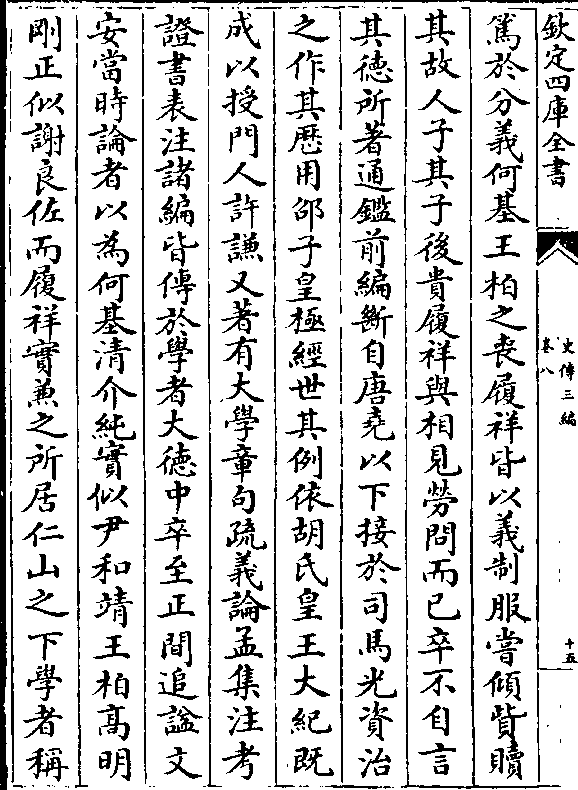 欽定四庫全書
史傳三編
卷八
十五
篤於分義何基王柏之喪履祥皆以義制服嘗傾貲贖
其故人子其子後貴履祥與相見勞問而已卒不自言
其徳所著通鑑前編斷自唐堯以下接於司馬光資治
之作其厯用邵子皇極經世其例依胡氏皇王大紀既
成以授門人許謙又著有大學章句疏義論孟集注考
證書表注諸編皆傳於學者大徳中卒至正間追諡文
安當時論者以為何基清介純實似尹和靖王柏高明
剛正似謝良佐而履祥實兼之所居仁山之下學者稱